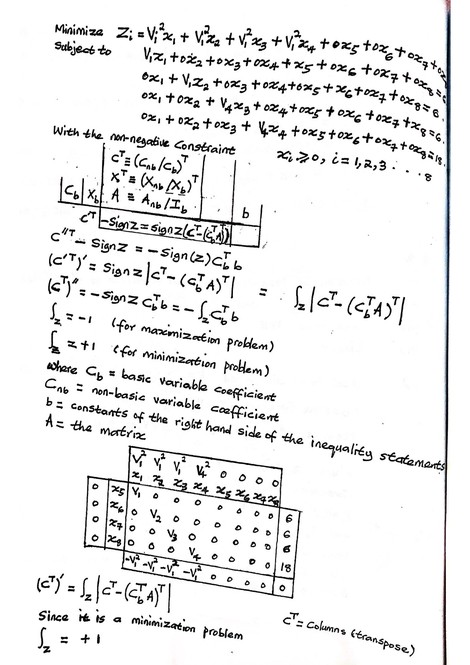 Minimize Zᵢ = V₁²x₁ + V₁²x₂ + V₁²x₃ + V₁²x₄ + 0x₅ + 0x₆ + 0x₇ + 0x
Subject to V₁x₁ + 0x₂ + 0x₃ + 0x₄ + x₅ + 0x₆ + 0x₇ + 0x₈ =
0x₁ + V₁x₂ + 0x₃ + 0x₄ + 0x₅ + x₆ + 0x₇ + 0x₈ = 6.
0x₁ + 0x₂ + V₄x₃ + 0x₄ + 0x₅ + 0x₆ + x₇ + 0x₈ = 6.
0x₁ + 0x₂ + 0x₃ + V₄x₄ + 0x₅ + 0x₆ + 0x₇ + 0x₈ = 18.
With the non-negative Constraint xᵢ ≥ 0, i = 1, 2, 3 . . . 8
Cᵀ ≡ (Cnb/Cb)ᵀ
Xᵀ ≡ (Xnb/Xb)ᵀ
Cb Xb A ≡ Anb/Ib b
Cᵀ -Sign Z = Sign Z (Cᵀ(CbᵀA))
C''ᵀ - Sign Z = -Sign(Z) Cbᵀ b
(C'ᵀ)' = Sign Z |Cᵀ - (CbᵀA)ᵀ| = ∫z |Cᵀ - (CbᵀA)ᵀ|
(Cᵀ)'' = -Sign Z Cbᵀ b = -∫z Cbᵀ b
∫z = -1 (for maximization problem)
∫z = +1 (for minimization problem)
Where Cb = basic variable coefficient
Cnb = non-basic variable coefficient
b = constants of the right hand side of the inequality statements
A = the matrix
V₁² V₁² V₁² V₄² 0 0 0 0
x₁ x₂ x₃ x₄ x₅ x₆ x₇ x₈
0 x₅ V₁ 0 0 0 0 0 0 0 6
0 x₆ 0 V₂ 0 0 0 0 0 0 6
0 x₇ 0 0 V₃ 0 0 0 0 0 6
0 x₈ 0 0 0 V₄ 0 0 0 0 18
-V₁² -V₁² -V₁² -V₁² 0 0 0 0 0
(Cᵀ)' = ∫z |Cᵀ - (CbᵀA)ᵀ|
Cᵀ = Columns (transpose)
Since it is a minimization problem
∫z = +1